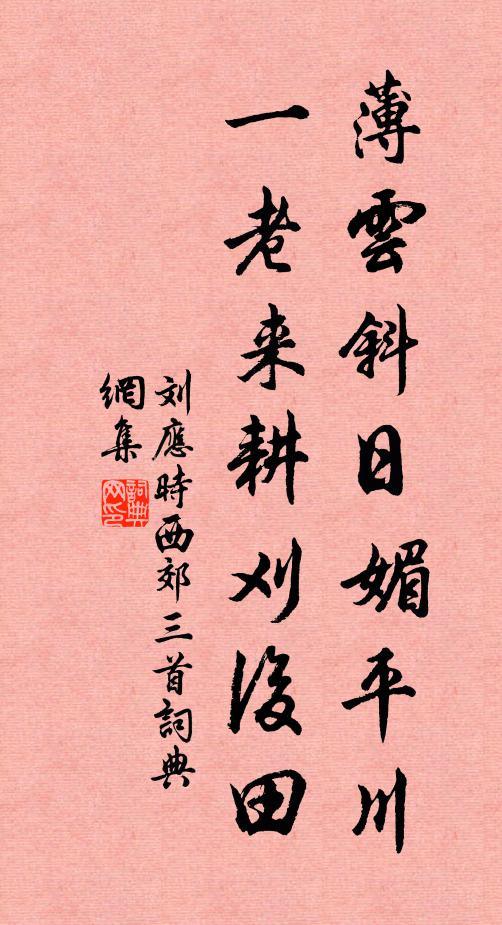 薄雲斜日媚平川
一老来耕刈後田
刘應時西郊三首詞典
網集
詞典
网印